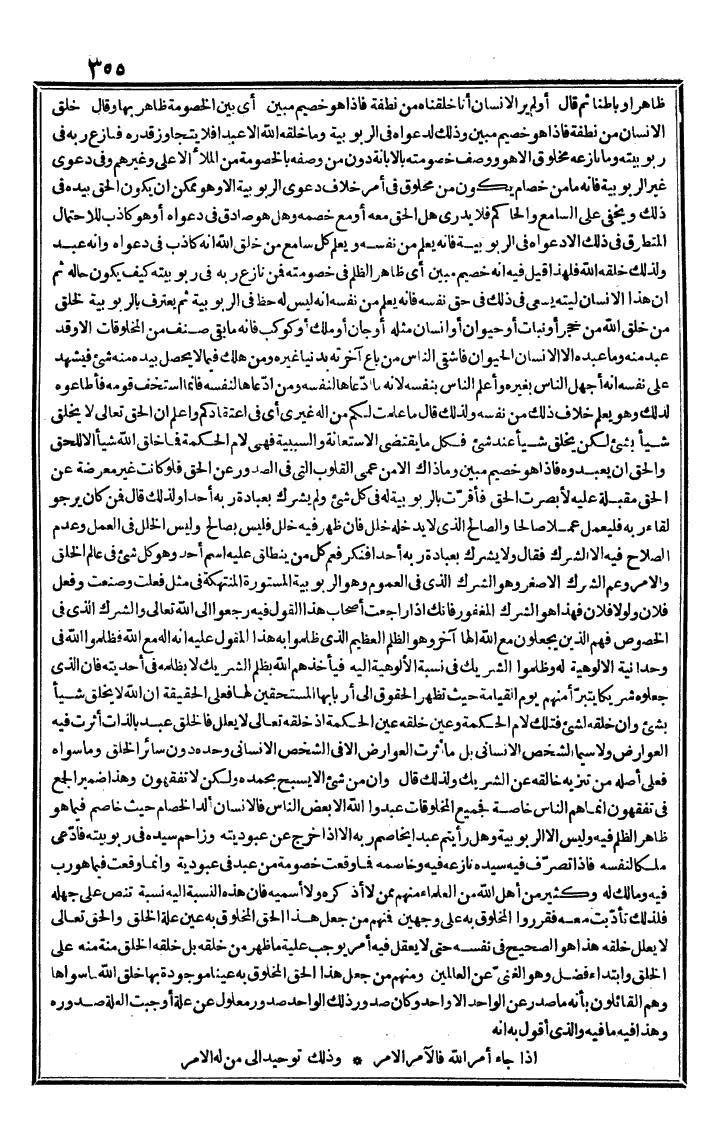 ٣٥٥
ظاهرا وباطنا ثم قال أولم ير الانسان أنا خلقناه من نطفة فاذا هو خصيم مبين أى بين الخصومة ظاهر بها وقال خلق
الانسان من نطفة فاذا هو خصيم مبين وذلك لدعواه فى الربوبية وما خلقه الله الا عبدا فلا يتجاوز قدره فنازع ربه فى
ربوبيته وما نازعه مخلوق الا هو ووصف خصومته بالابانة دون من وصفه بالخصومة من الملأ الاعلى وغيرهم وفى دعوى
غير الربوبية فانه ما من خصام يكون من مخلوق فى أمر خلاف دعوى الربوبية الا وهو ممكن ان يكون الحق بيده فى
ذلك ويخفى على السامع والحاكم فلا يدرى هل الحق معه أو مع خصمه وهل هو صادق فى دعواه أو هو كاذب للاحتمال
المتطرق فى ذلك الا دعواه فى الربوبية فانه يعلم من نفسه ويعلم كل سامع من خلق الله انه كاذب فى دعواه وانه عبد
ولذلك خلقه الله فلهذا قيل فيه انه خصيم مبين أى ظاهر الظلم فى خصومته فمن نازع ربه فى ربوبيته كيف يكون حاله ثم
ان هذا الانسان ليته يسعى فى ذلك فى حق نفسه فانه يعلم من نفسه انه ليس له حظ فى الربوبية ثم يعترف بالربوبية لخلق
من خلق الله من حجر أو نبات أو حيوان أو انسان مثله أو جان أو ملك أو كوكب فانه ما بقى صنف من المخلوقات الا وقد
عبد منه وما عبده الا الانسان الحيوان فاشقى الناس من باع آخرته بدنيا غيره ومن هلك فيما لا يحصل بيده منه شئ فيشهد
على نفسه انه أجهل الناس بغيره وأعلم الناس بنفسه لانه ما ادّعاها لنفسه ومن ادّعاها لنفسه فانما استخف قومه فأطاعوه
لذلك وهو يعلم خلاف ذلك من نفسه ولذلك قال ما علمت لكم من اله غيرى أى فى اعتقادكم واعلم ان الحق تعالى لا يخلق
شيأ بشئ لكن يخلق شيأ عند شئ فكل ما يقتضى الاستعانة والسببية فهى لام الحكمة فما خلق الله شيأ الا للحق
والحق ان يعبدوه فاذا هو خصيم مبين وما ذاك الا من عمى القلوب التى فى الصدور عن الحق فلو كانت غير معرضة عن
الحق مقبلة عليه لأبصرت الحق فأقرّت بالربوبية له فى كل شئ ولم يشرك بعبادة ربه أحدا ولذلك قال فمن كان يرجو
لقاء ربه فليعمل عملا صالحا والصالح الذى لا يدخله خلل فان ظهر فيه خلل فليس بصالح وليس الخلل فى العمل وعدم
الصلاح فيه الا الشرك فقال ولا يشرك بعبادة ربه أحدا فنكر فعم كل من ينطلق عليه اسم أحد وهو كل شئ فى عالم الخلق
والامر وعم الشرك الاصغر وهو الشرك الذى فى العموم وهو الربوبية المستورة المنتهكة فى مثل فعلت وصنعت وفعل
فلان ولولا فلان فهذا هو الشرك المغفور فانك اذا راجعت أصحاب هذا القول فيه رجعوا الى الله تعالى والشرك الذى فى
الخصوص فهم الذين يجعلون مع الله الها آخر وهو الظلم العظيم الذى ظلموا به هذا المقول عليه انه اله مع الله فظلموا الله فى
وحدانية الالوهية له وظلموا الشريك فى نسبة الألوهية اليه فيأخذهم الله بظلم الشريك لا بظلمه فى أحديته فان الذى
جعلوه شريكا يتبرّأ منهم يوم القيامة حيث تظهر الحقوق الى أربابها المستحقين لها فعلى الحقيقة ان الله لا يخلق شيأ
بشئ وان خلقه لشئ فتلك لام الحكمة وعين خلقه عين الحكمة اذ خلقه تعالى لا يعلل فالخلق عبد بالذات أثرت فيه
العوارض ولا سيما الشخص الانسانى بل ما أثرت العوارض الا فى الشخص الانسانى وحده دون سائر الخلق وما سواه
فعلى أصله من تنزيه خالقه عن الشريك ولذلك قال وان من شئ الا يسبح بحمده ولكن لا تفقهون وهذا ضمير الجع
فى تفقهون انما هم الناس خاصة فجميع المخلوقات عبدوا الله الا بعض الناس فالانسان ألد الخصام حيث خاصم فيما هو
ظاهر الظلم فيه وليس الا الربوبية وهل رأيتم عبدا يخاصم ربه الا اذا خرج عن عبوديته وزاحم سيده فى ربوبيته فادّعى
ملكا لنفسه فاذا تصرّف فيه سيده نازعه فيه وخاصمه فما وقعت خصومة من عبد فى عبودية وانما وقعت فيما هو رب
فيه ومالك له وكثير من أهل الله من العلماء منهم ممن لا أذكره ولا أسميه فان هذه النسبة اليه نسبة تنص على جهله
فلذلك تأدّبت معه فقرروا المخلوق به على وجهين فمنهم من جعل هذا الحق المخلوق به عين علة الخلق والحق تعالى
لا يعلل خلقه هذا هو الصحيح فى نفسه حتى لا يعقل فيه أمر يوجب علية ما ظهر من خلقه بل خلقه الخلق منة منه على
الخلق وابتداء فضل وهو الغنىّ عن العالمين ومنهم من جعل هذا الحق المخلوق به عينا موجودة بها خلق الله ما سواها
وهم القائلون بأنه ما صدر عن الواحد الا واحد وكان صدور ذلك الواحد صدور معلول عن علة أوجبت العلة صدوره
وهذا فيه ما فيه والذى أقول به انه
اذا جاء أمر الله فالآمر الامر * وذلك توحيد الى من له الامر